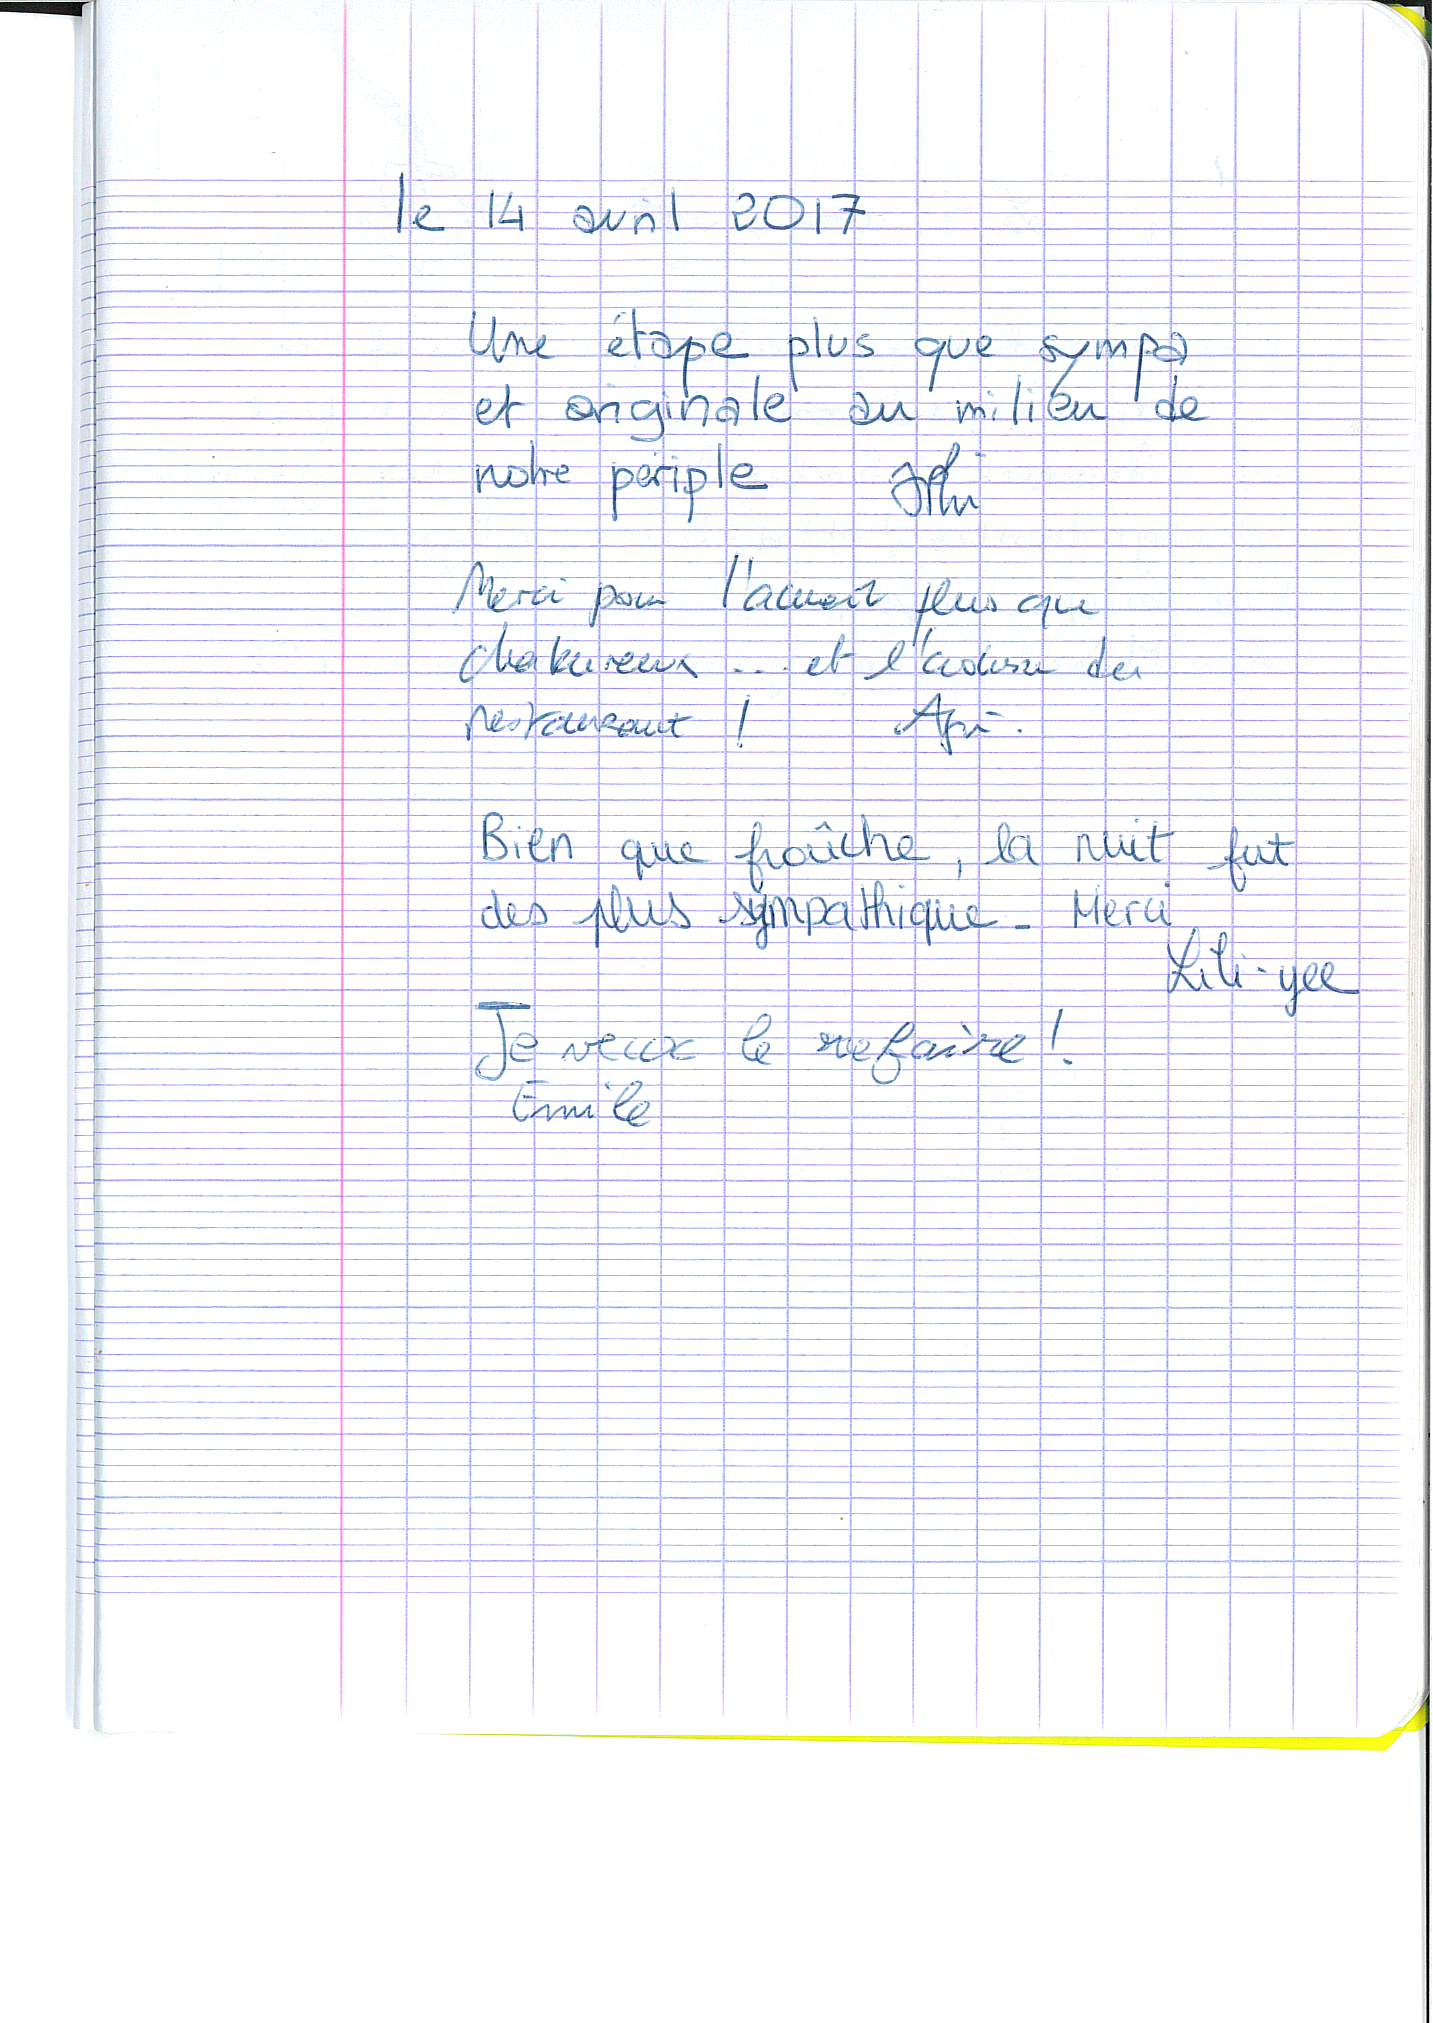 le 14 avril 2017
Une étape plus que sympa
et originale au milieu de
notre périple
Merci pour l'accueil plus que
chaleureux ... et l'adresse du
restaurant !
Bien que fraîche, la nuit fut
des plus sympathique - Merci
Lili-yee
Je veux le refaire !
Emile